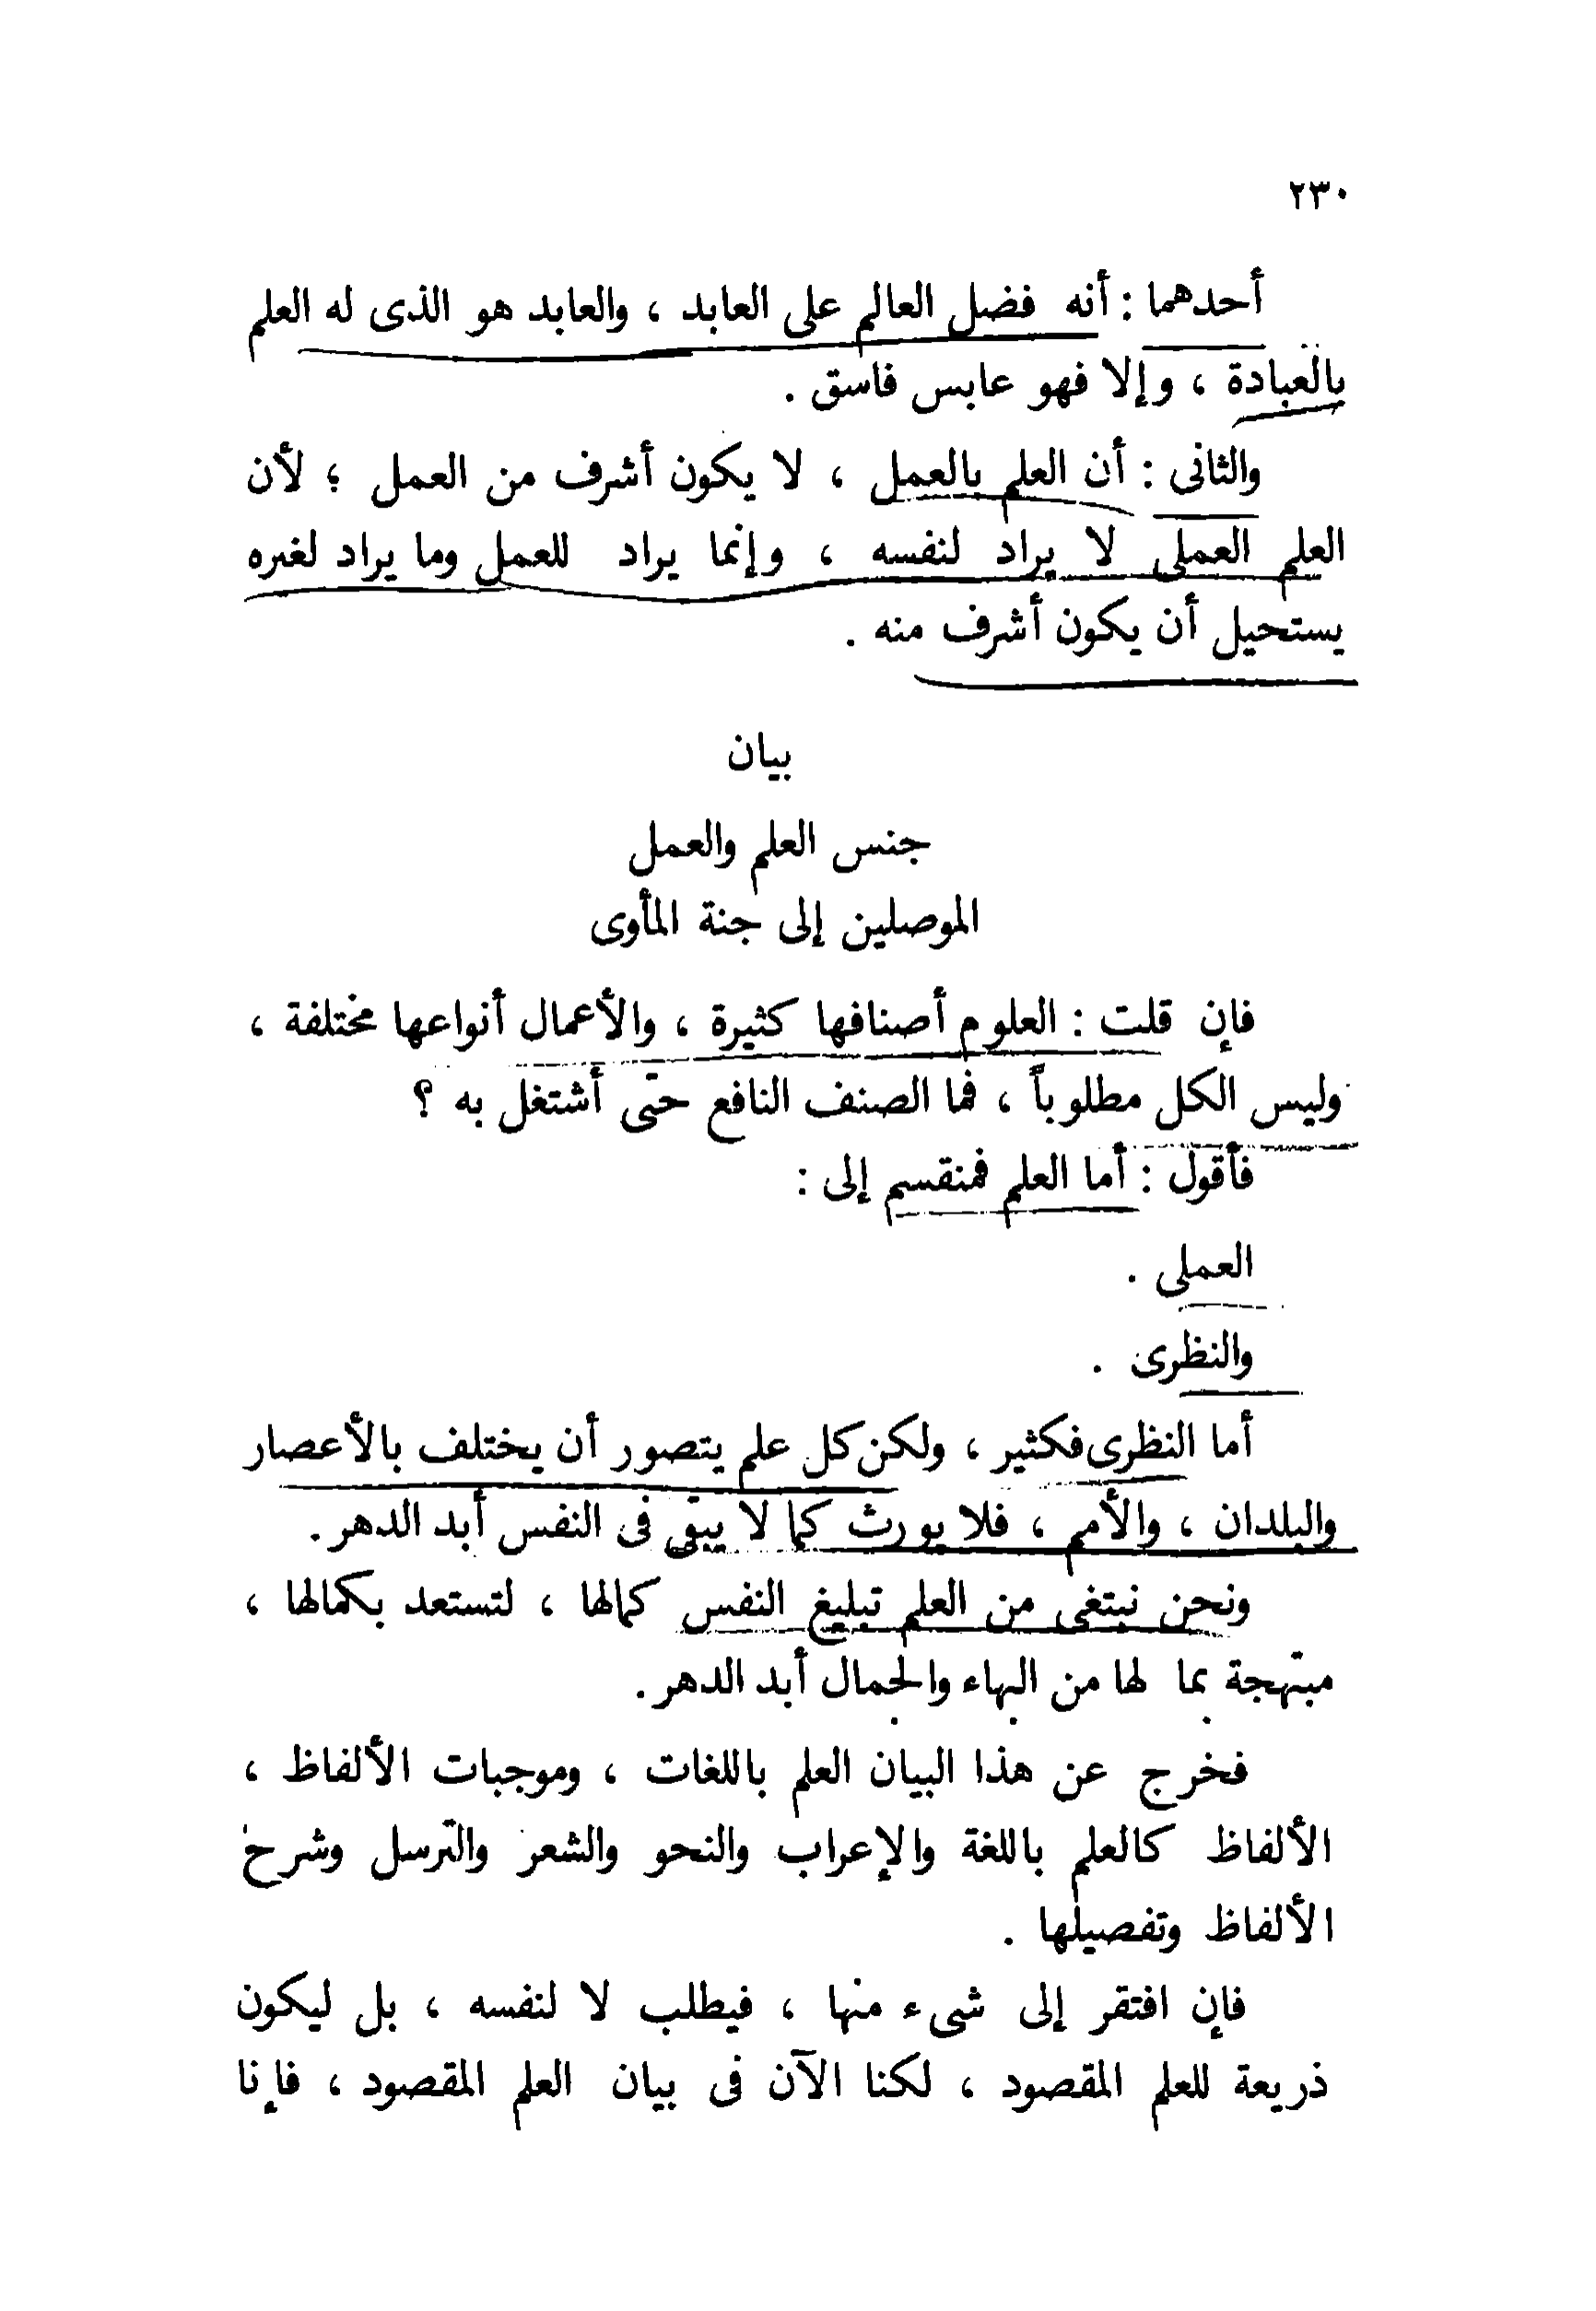 ٢٣٠
أحدهما : أنه فضل العالم على العابد ، والعابد هو الذى له العلم
بالعبادة ، وإلا فهو عابس فاسق .
والثانى : أن العلم بالعمل ، لا يكون أشرف من العمل ؛ لأن
العلم العملى لا يراد لنفسه ، وإنما يراد للعمل وما يراد لغيره
يستحيل أن يكون أشرف منه .
بيان
جنس العلم والعمل
الموصلين إلى جنة المأوى
فإن قلت : العلوم أصنافها كثيرة ، والأعمال أنواعها مختلفة ،
وليس الكل مطلوباً ، فما الصنف النافع حتى أشتغل به ؟
فأقول : أما العلم فمنقسم إلى :
العملى .
والنظرى .
أما النظرى فكثير ، ولكن كل علم يتصور أن يختلف بالأعصار
والبلدان ، والأمم ، فلا يورث كما لا يبقى فى النفس أبد الدهر .
ونحن نبتغى من العلم تبليغ النفس كمالها ، لتستعد بكمالها ،
مبتهجة بما لها من البهاء والجمال أبد الدهر .
فخرج عن هذا البيان العلم باللغات ، وموجبات الألفاظ ،
الألفاظ كالعلم باللغة والإعراب والنحو والشعر والترسل وشرح
الألفاظ وتفصيلها .
فإن افتقر إلى شىء منها ، فيطلب لا لنفسه ، بل ليكون
ذريعة للعلم المقصود ، لكنا الآن فى بيان العلم المقصود ، فإنا